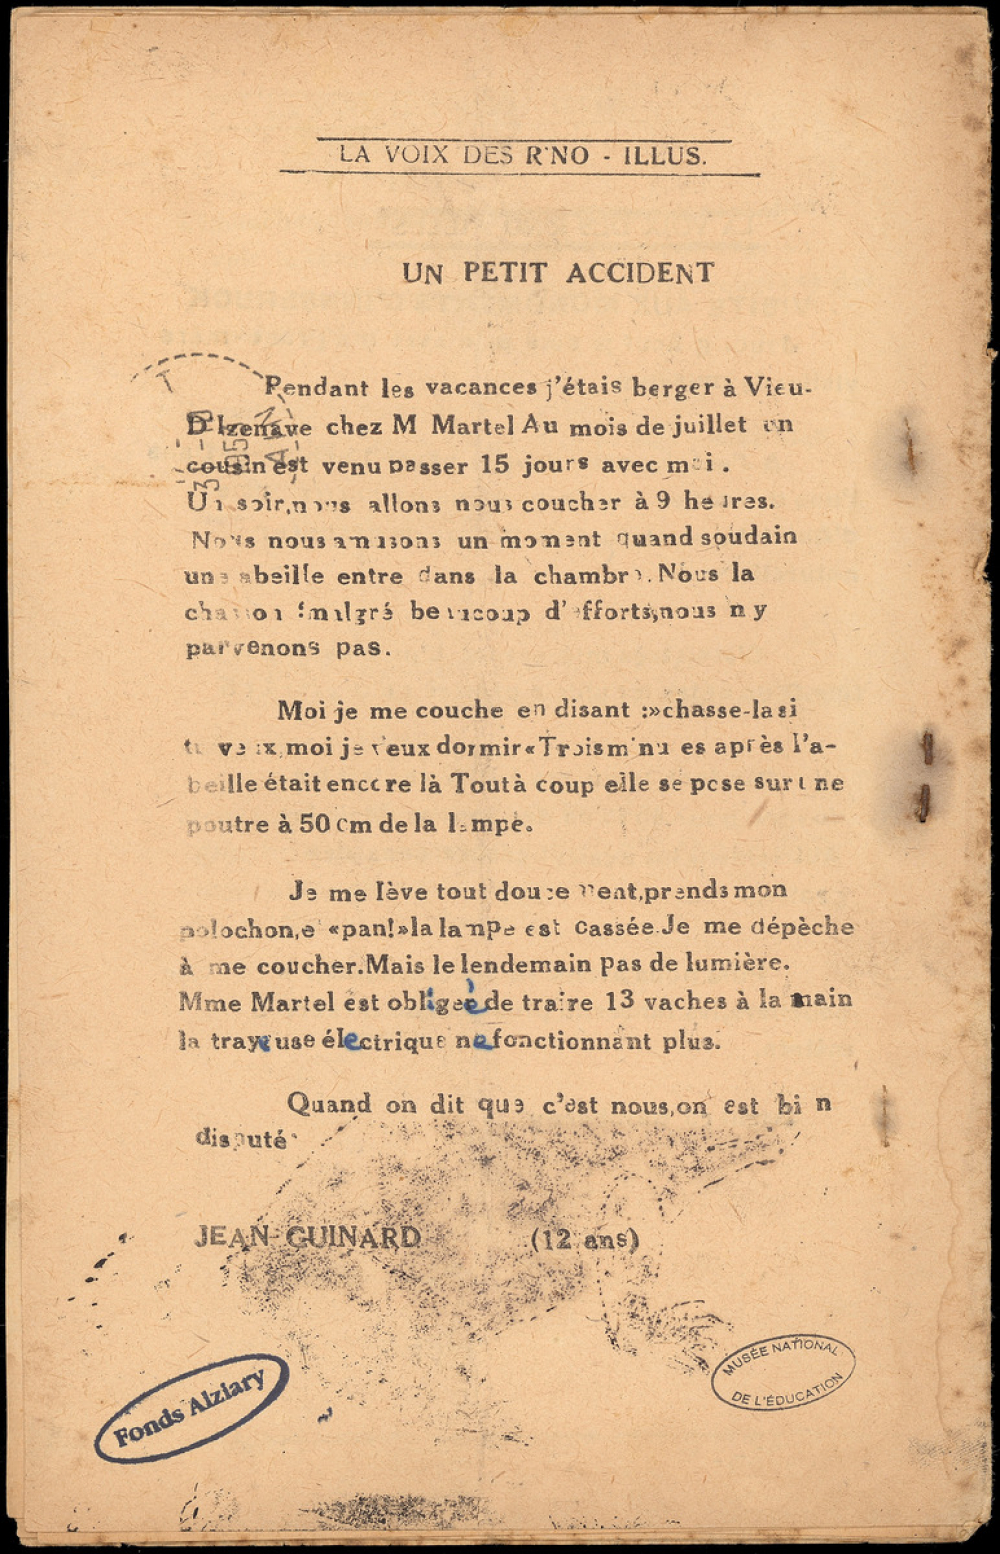 LA VOIX DES R'NO - ILLUS.
UN PETIT ACCIDENT
Pendant les vacances j'étais berger à Vieu-
D'Izenave chez M Martel Au mois de juillet un
cousin est venu passer 15 jours avec moi.
Un soir,nous allons nous coucher à 9 heures.
Nous nous amusons un moment quand soudain
une abeille entre dans la chambre. Nous la
malgré beaucoup d'efforts,nous n y
parvenons pas.
Moi je me couche en disant :»chasse-la si
tu veux,moi je veux dormir« Trois minutes après l'a-
beille était encore là Tout à coup elle se pose sur une
poutre à 50 cm de la lampe.
Je me lève tout doucement,prends mon
polochon,e «pan!»la lampe est cassée.Je me dépèche
à me coucher.Mais le lendemain pas de lumière.
Mme Martel est obligeè de traire 13 vaches à la main
la trayeuse électrique ne fonctionnant plus.
Quand on dit que c'est nous,on est bi n
disputé
JEAN GUINARD (12 ans)
Fonds Alziary
MUSÉE NATIONAL
DE L'ÉDUCATION